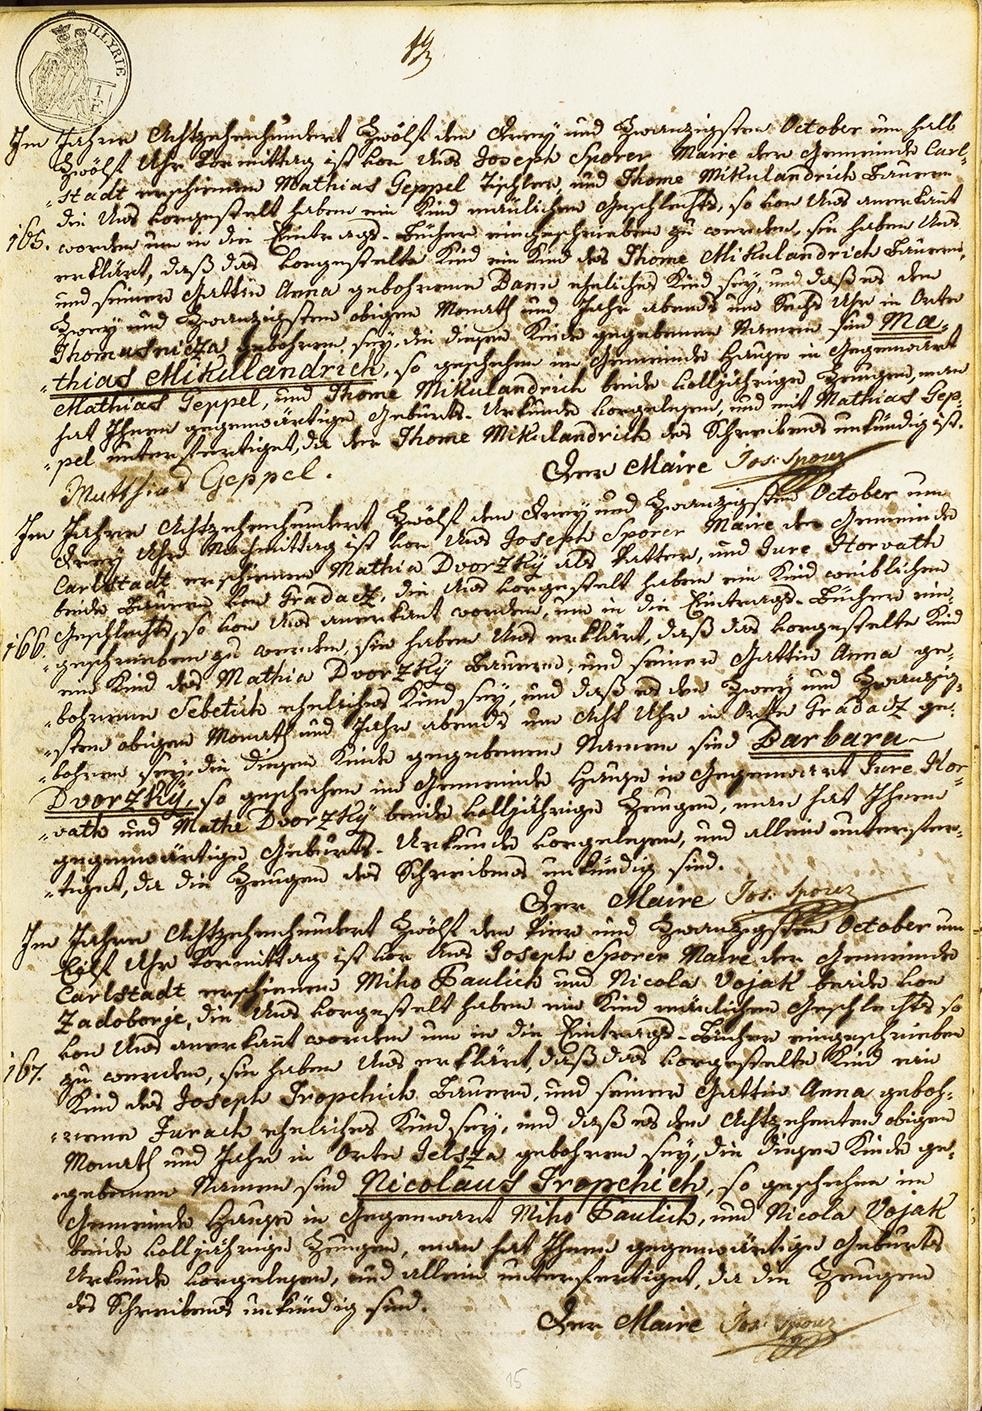 ILLYRIE
1/F
19
Im Jahre Achtzehenhundert Zwölf den Drey und Zwanzigsten October um halb
Zwölf Uhr Vormittag ist vor Uns Joseph Sporer Maire der Gemeinde Carl-
-stadt erschienen Mathias Geppel Tischler und Thome Mikulandrich Bauern
die Uns vorgestelt haben ein Kind mänlichen Geschlechts, so von Uns anerkant
165. worden um in die Eintrags-Bücher eingeschrieben zu werden, sie haben Uns
erklärt, daß das vorgestelte Kind ein Kind des Thome Mikulandrich Bauern,
und seiner Gattin Anna gebohrene Bann eheliches Kind sey, und daß es den
Zwey und Zwanzigsten obigen Monath und Jahr abends um Sechs Uhr in Orte
Thomasnicza gebohren sey, die diesen Kinde gegebenen Namen sind Ma-
-thias Mikulandrich, so geschehen im Gemeinde Hause in Gegenwart
Mathias Geppel, und Thome Mikulandrich beide volljährige Zeugen, man
hat Ihnen gegenwärtige Geburts-Urkunde vorgelesen, und mit Mathias Gep-
-pel unterfertiget, da der Thome Mikulandrich des Schreibens unkündig ist.
Der Maire Jos: Sporer
Matthias Geppel.
Im Jahre Achtzehenhundert Zwölf den Drey und Zwanzigsten October um
Drey Uhr Nachmittag ist vor Uns Joseph Sporer Maire der Gemeinde
Carlstadt erschienen Mathia Dvorzky als Vatter, und Jure Horvath
beide Bauern von Gradacz, die Uns vorgestelt haben ein Kind weiblichen
Geschlechts, so von Uns anerkant worden, um in die Eintrags-Bücher ein-
166. -geschrieben zu werden, sie haben Uns erklärt, daß das vorgestelte Kind
ein Kind des Mathia Dvorzky Bauern, und seiner Gattin Anna ge-
-bohrene Sebetich eheliches Kind sey, und daß es den Zwey und Zwanzig-
-sten obigen Monath und Jahr abends um Acht Uhr in Orte Gradacz ge-
-bohren sey, die diesen Kinde gegebenen Namen sind Barbara
Dvorzky, so geschehen im Gemeinde Hause in Gegenwart Jure Hor-
-vath und Mathe Dvorzky beide volljährige Zeugen, man hat Ihnen
gegenwärtige Geburts-Urkunde vorgelesen, und allein unterfer-
-tiget, da die Zeugen des Schreibens unkündig sind.
Der Maire Jos: Sporer
Im Jahre Achtzehenhundert Zwölf den Vier und Zwanzigsten October um
Eilf Uhr Vormittag ist vor Uns Joseph Sporer Maire der Gemeinde
Carlstadt erschienen Miho Paulich und Nicola Vojak beide von
Zadoborje, die Uns vorgestelt haben ein Kind mänlichen Geschlechts so
von Uns anerkant worden um in die Eintrags-Bücher eingeschrieben
167. zu werden, sie haben Uns erklärt, daß das vorgestelte Kind ein
Kind des Joseph Tropchich Bauern, und seiner Gattin Anna geboh-
-rene Turach eheliches Kind sey, und daß es den Achtzehenten obigen
Monath und Jahr in Orte Jelsza gebohren sey, die diesen Kinde ge-
-gebenen Namen sind Nicolaus Tropchich, so geschehen im
Gemeinde Hause in Gegenwart Miho Paulich, und Nicola Vojak
beide volljährige Zeugen, man hat Ihnen gegenwärtige Geburts
Urkunde vorgelesen, und allein unterfertiget, da die Zeugen
des Schreibens unkündig sind.
Der Maire Jos: Sporer
15